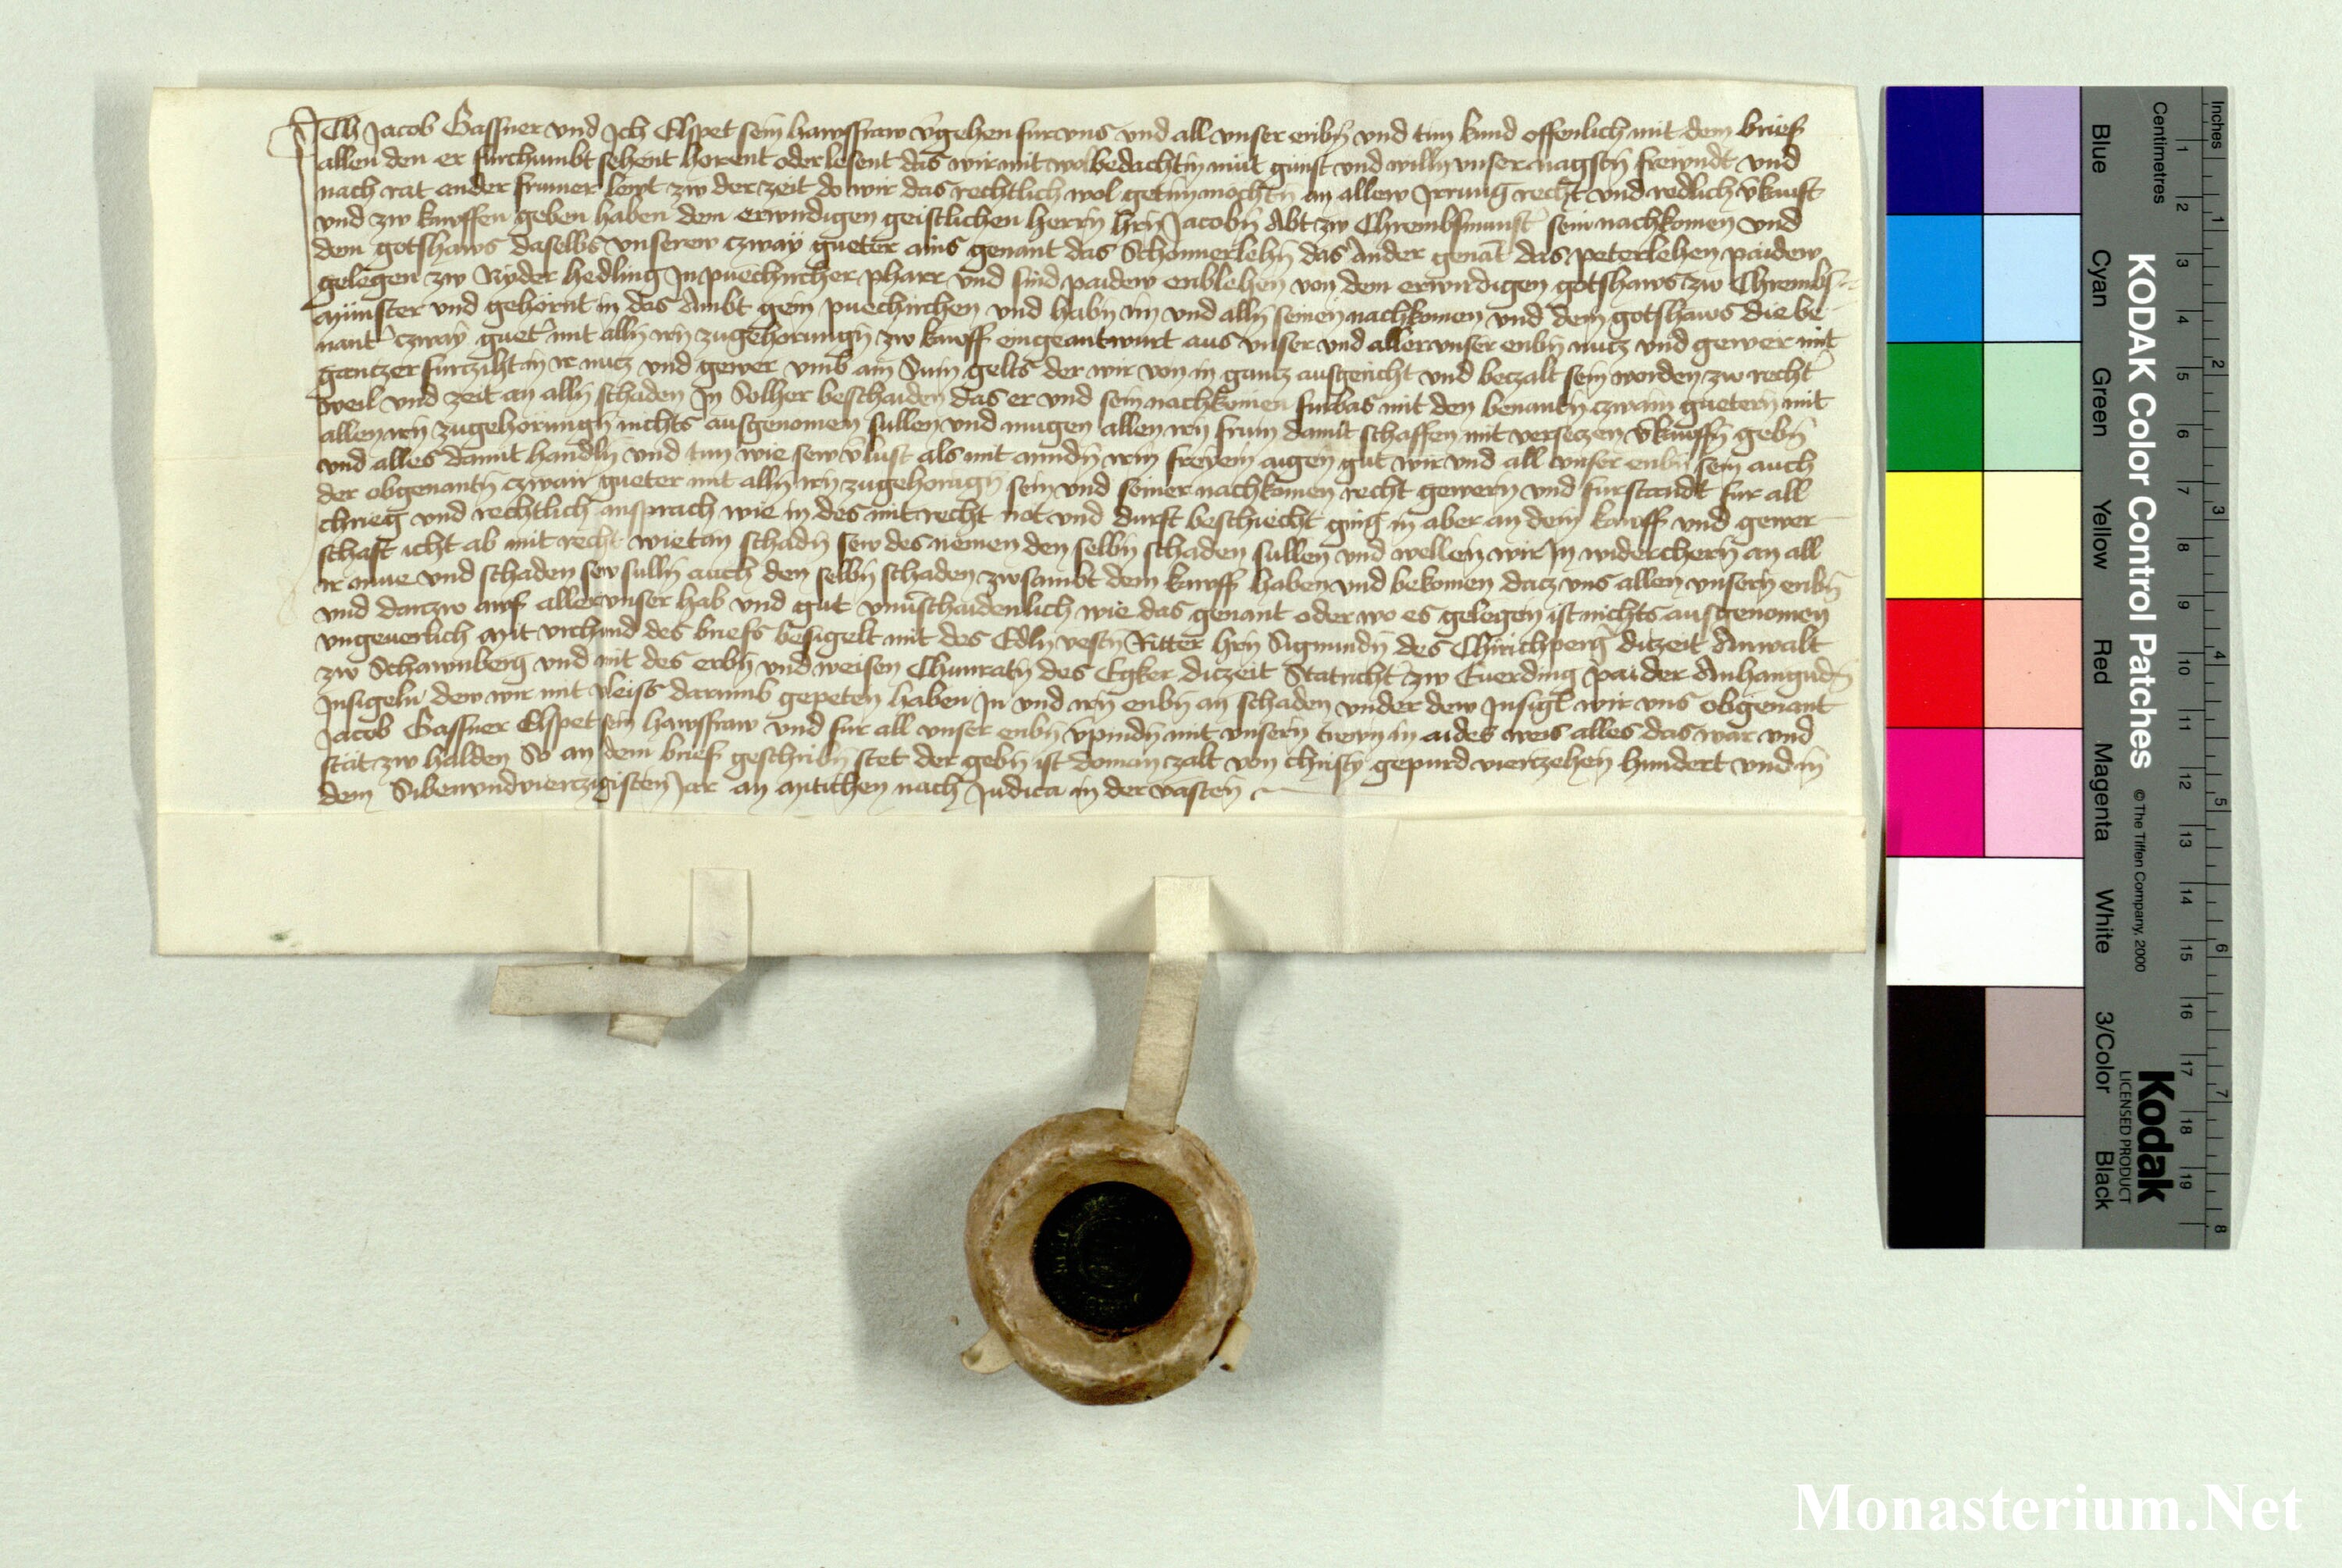 Ich Jacob Gassner vnd Ich Elspet sein hawsfraw v̄gehen fur vns vnd all vnser eribn̄ vnd tun kund offenlich mit dem brief
allen den er furchumbt sehent horent oder lesent das wir mit wolbedachtm̄ mut gunst vnd willn̄ vnser nagstn̄ frewndt vnd
nach rat ander frumer lewt zw der zeit do wir das rechtlich wol getun mochtn̄ an allew Irrung recht vnd redlich v̄kauft
vnd zw kawffen geben haben dem erwirdigen geistlichen herrn̄ hrn̄ Jacobn̄ Abt zw Chrembsmunst̄ sein nachkomen vnd
dem gotshaws daselbs vnserew czway gueter ains genant das Schonnerlehn̄ das Ander genāt das peterlehen paidew
gelegen zw Nyder hedling In puechircher pharr vnd sind paidew erblehen von dem erwirdigen gotshaws zw Chrembs-
münster vnd gehornt in das Ambt gein puechirchen vnd habn̄ im vnd alln̄ seinen nachkomen vnd dem gotshaws die be-
nant̄ czway guet̄ mit alln̄ irn̄ zugehorungn̄ zw kauff eingeantwurt aus vnser vnd aller vnser eribn̄ nucz vnd gewer mit
gantzer furtziht in ir nucz vnd gewer vmb ain Sum gelts der wir von in gantz ausgericht vnd beczalt sein worden zw recht̄
weil vnd zeit an alln̄ schaden In Solher beschaiden das er vnd sein nachkomen furbas mit den benantn̄ czwain guetern mit
allen irn̄ zugehorungn̄ nichts ausgenomen sullen vnd mugen allen irn̄ frum damit schaffen mit verseczen v̄kauffn̄ gebn̄
vnd alles damit handln̄ vnd tun wie sew v̄lust als mit anndn̄ irm̄ freyem aigen gut wir vnd all vnser eribn̄ sein auch
der obgenantn̄ czwair gueter mit alln̄ irn̄ zugehorūgn̄ sein vnd seiner nachkomen recht gewern vnd furstandt fur all
chrieg vnd rechtlich ansprach wie in des mit recht not vnd durft beschiecht ging in aber an dem kawff vnd gewer-
schaft icht ab mit recht wietan schadn̄ sew des nemen den selbn̄ schaden sullen vnd wellen wir In widerchern̄ an all
ir mue vnd schaden sew sulln̄ auch den selbn̄ schaden zwsambt dem kawff haben vnd bekomen dacz vns allen vnsern̄ eribn̄
vnd darczw auf aller vnser hab vnd gut vnuerschaidenlich wie das genant oder wo es gelegen ist nichts ausgenomen
vngeuerlich Mit vrchund des briefs besigelt mit des Edln̄ vestn̄ Ritter hrn̄ Sigmundn̄ des Chirichperḡ diczeit Anwalt
zw Schawnberg vnd mit des erbn̄ vnd weisen Chunratn̄ des Egker diczeit Statricht̄ zw Euerding paider Anhangūdn̄
Insigeln̄ dew wir mit vleiss darumb gepeten haben In vnd irn̄ eribn̄ an schaden vnder dew Insigl̄ wir vns obgenant
Jacob Gassner Elspet sein hawsfraw vnd fur all vnser eribn̄ v̄pindn̄ mit vnsern̄ trewn̄ in aides weis alles das war vnd
stät zw halden So an dem brief geschribn̄ stet der gebn̄ ist do man zalt von christy gepurd vierczehen hundert vnd in
dem Sibenvndvierczigisten Jar an Mitichen nach Judica in der vasten
KODAK Color Control Patches
© The Tiffen Company, 2000
Kodak
LICENSED PRODUCT
Blue Cyan Green Yellow Red Magenta White 3/Color Black
Inches
1 2 3 4 5 6 7 8
Centimetres
1 2 3 4 5 6 7 8 9 10 11 12 13 14 15 16 17 18 19
Monasterium.Net